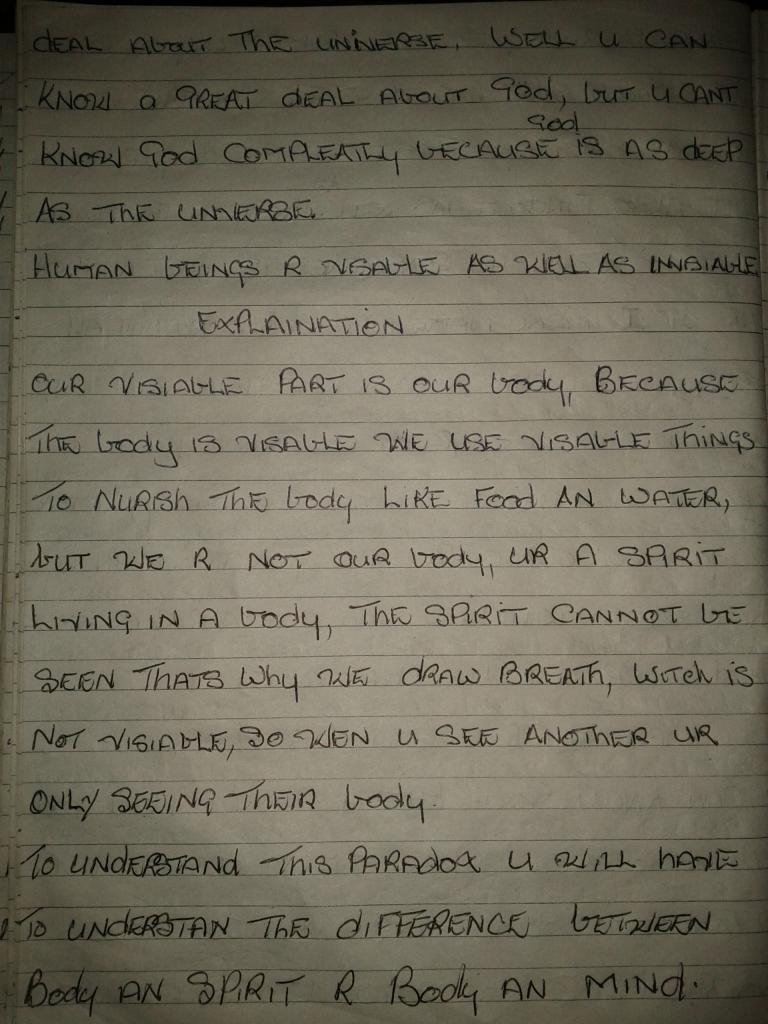 DEAL ABOUT THE UNIVERSE. WELL U CAN
KNOW a GREAT DEAL ABOUT God, but U CANT
God
KNOW God COMPLEATLY BECAUSE IS AS DEEP
AS THE UNIVERSE.
HUMAN BEINGS R VISABLE AS WELL AS INVISIABLE
EXPLAINATION
OUR VISIABLE PART IS OUR body, BECAUSE
THE body IS VISABLE WE USE VISABLE THINGS
TO NURISH THE body LIKE Food AN WATER,
but WE R NOT OUR body, UR A SPIRIT
LIVING IN A body, THE SPIRIT CANNOT BE
SEEN THATS Why WE dRAW BREATH, WITCH IS
NOT VISIABLE, SO WEN U SEE ANOTHER UR
ONLY SEEING THEIR body.
TO UNDERSTAND THIS PARADOX U WILL HAVE
TO UNDERSTAN THE dIFFERENCE BETWEEN
Body AN SPIRIT R Body AN MIND.